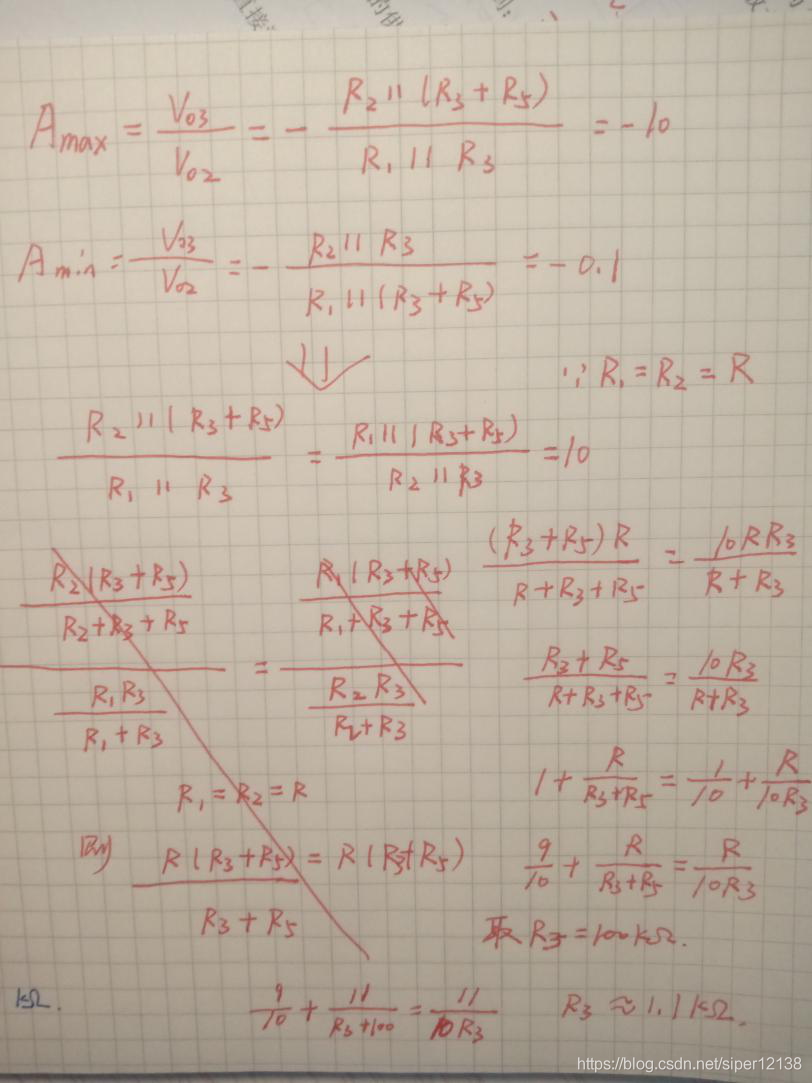 A max = V03 / V02 = - R2 || (R3 + R5) / R1 || R3 = -10
A min = V03 / V02 = - R2 || R3 / R1 || (R3 + R5) = -0.1
⇓
∵ R1 = R2 = R
R2 || (R3 + R5) / R1 || R3 = R1 || (R3 + R5) / R2 || R3 = 10
R2(R3 + R5) / R2 + R3 + R5 / R1 R3 / R1 + R3 = R1(R3 + R5) / R1 + R3 + R5 / R2 R3 / R2 + R3
R1 = R2 = R
R(R3 + R5) / R3 + R5 = R(R3 + R5)
(R3 + R5)R / R + R3 + R5 = 10RR3 / R + R3
R3 + R5 / R + R3 + R5 = 10R3 / R + R3
1 + R / R3 + R5 = 1 / 10 + R / 10R3
9 / 10 + R / R3 + R5 = R / 10R3
取 R5 = 100kΩ.
kΩ.
9 / 10 + 11 / R3 + 100 = 11 / 10R3
R3 ≈ 1.1kΩ.
https://blog.csdn.net/siper12138